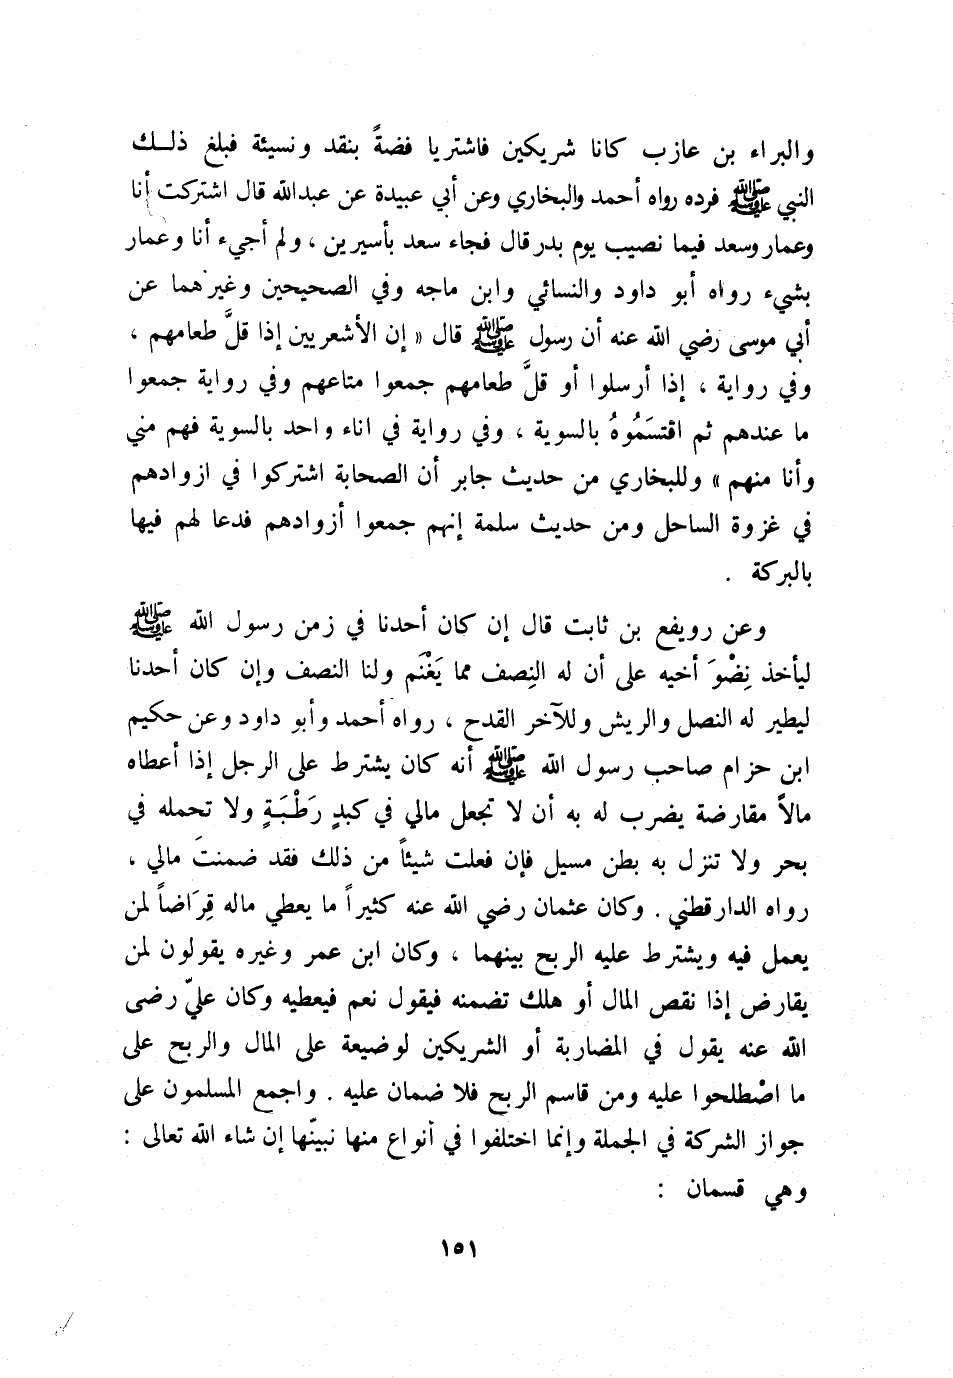 والبراء بن عازب كانا شريكين فاشتريا فضةً بنقد ونسيئة فبلغ ذلــك
النبي ﷺ فرده رواه أحمد والبخاري وعن أبي عبيدة عن عبدالله قال اشتركت أنا
وعمار وسعد فيما نصيب يوم بدر قال فجاء سعد بأسيرين ، ولم أجيء أنا وعمار
بشيء رواه أبو داود والنسائي وابن ماجه وفي الصحيحين وغيرهما عن
أبي موسى رضي الله عنه أن رسول ﷺ قال « إن الأشعريين إذا قلَّ طعامهم ،
وفي رواية ، إذا أرسلوا أو قلَّ طعامهم جمعوا متاعهم وفي رواية جمعوا
ما عندهم ثم اقتسَمُوهُ بالسوية ، وفي رواية في اناء واحد بالسوية فهم مني
وأنا منهم » وللبخاري من حديث جابر أن الصحابة اشتركوا في ازوادهم
في غزوة الساحل ومن حديث سلمة إنهم جمعوا أزوادهم فدعا لهم فيها
بالبركة .
وعن رويفع بن ثابت قال إن كان أحدنا في زمن رسول الله ﷺ
ليأخذ نِضْوَ أخيه على أن له النِصف مما يَغْنَم ولنا النصف وإن كان أحدنا
ليطير له النصل والريش وللآخر القدح ، رواه أحمد وأبو داود وعن حكيم
ابن حزام صاحب رسول الله ﷺ أنه كان يشترط على الرجل إذا أعطاه
مالاً مقارضة يضرب له به أن لا تجعل مالي في كبدٍ رَطْبَـةٍ ولا تحمله في
بحر ولا تنزل به بطن مسيل فإن فعلت شيئاً من ذلك فقد ضمنتَ مالي ،
رواه الدارقطني . وكان عثمان رضي الله عنه كثيراً ما يعطي ماله قِرَاضاً لمن
يعمل فيه ويشترط عليه الربح بينهما ، وكان ابن عمر وغيره يقولون لمن
يقارض إذا نقص المال أو هلك تضمنه فيقول نعم فيعطيه وكان عليّ رضى
الله عنه يقول في المضاربة أو الشريكين لوضيعة على المال والربح على
ما اصْطلحوا عليه ومن قاسم الربح فلا ضمان عليه . واجمع المسلمون على
جواز الشركة في الجملة وإنما اختلفوا في أنواع منها نبينّها إن شاء الله تعالى :
وهي قسمان :
١٥١